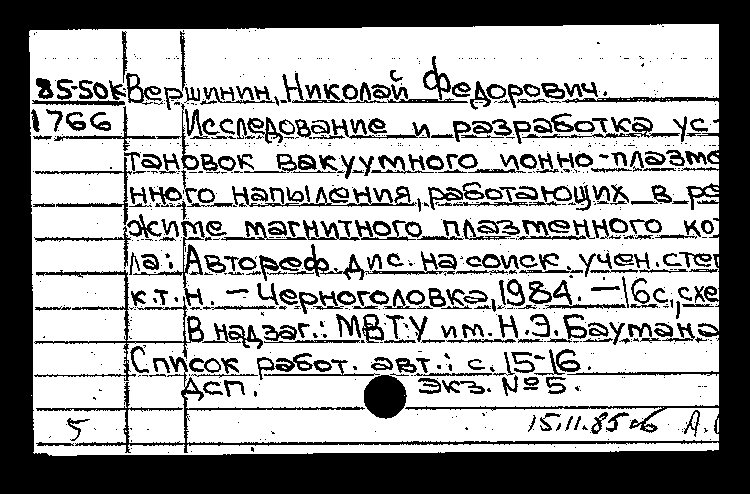 85-50к Вершинин, Николай Федорович.
1766 Исследование и разработка ус-
тановок вакуумного ионно-плазме
нного напыления, работающих в ре
жиме магнитного плазменного ко
ла: Автореф. дис. на соиск. учен. степ
к.т.н. - Черноголовка, 1984. - 16с, схе
В надзаг.: МВТУ им. Н.Э. Баумана
Список работ. авт.: с. 15-16.
ДСП. Экз. №5.
5 15.11.85 А.